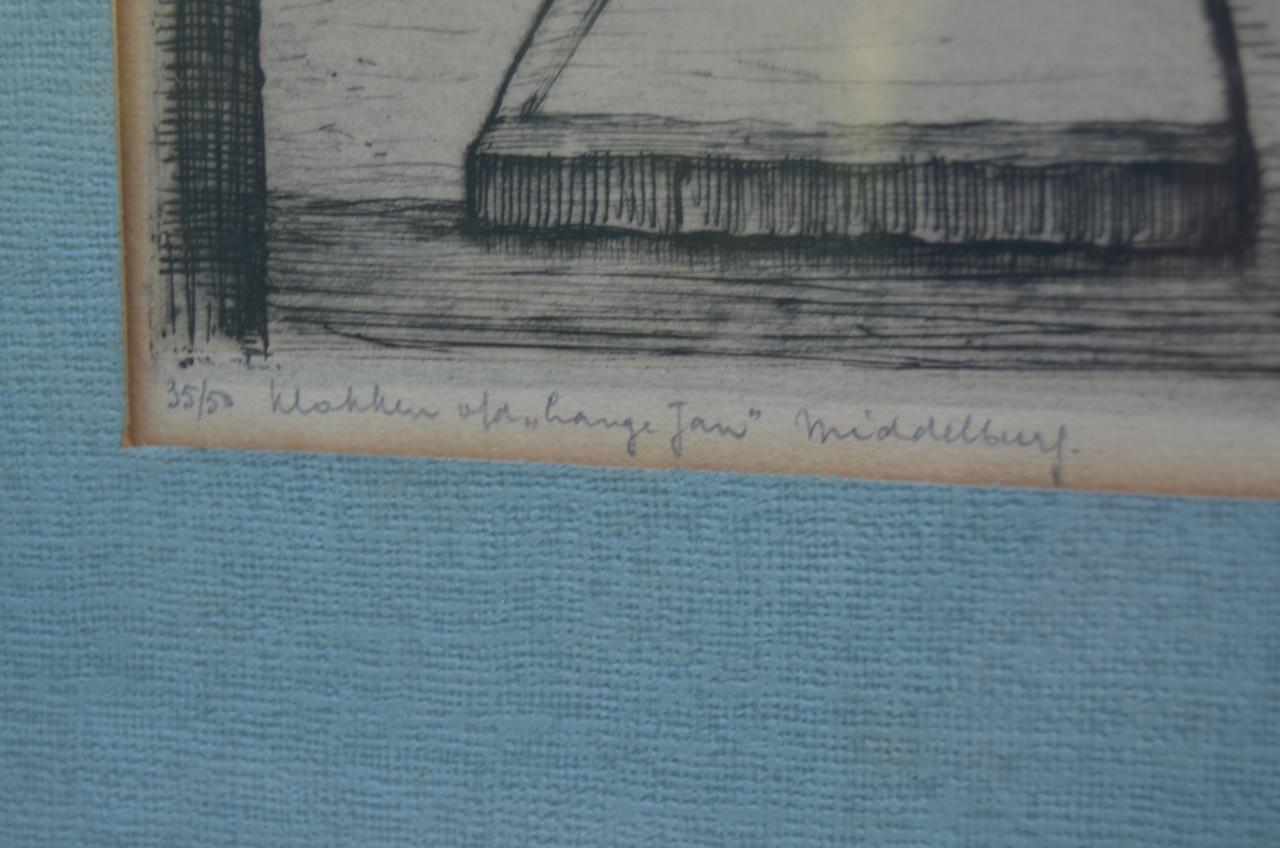 35/50 Klokken v/d „Lange Jan” Middelburg.